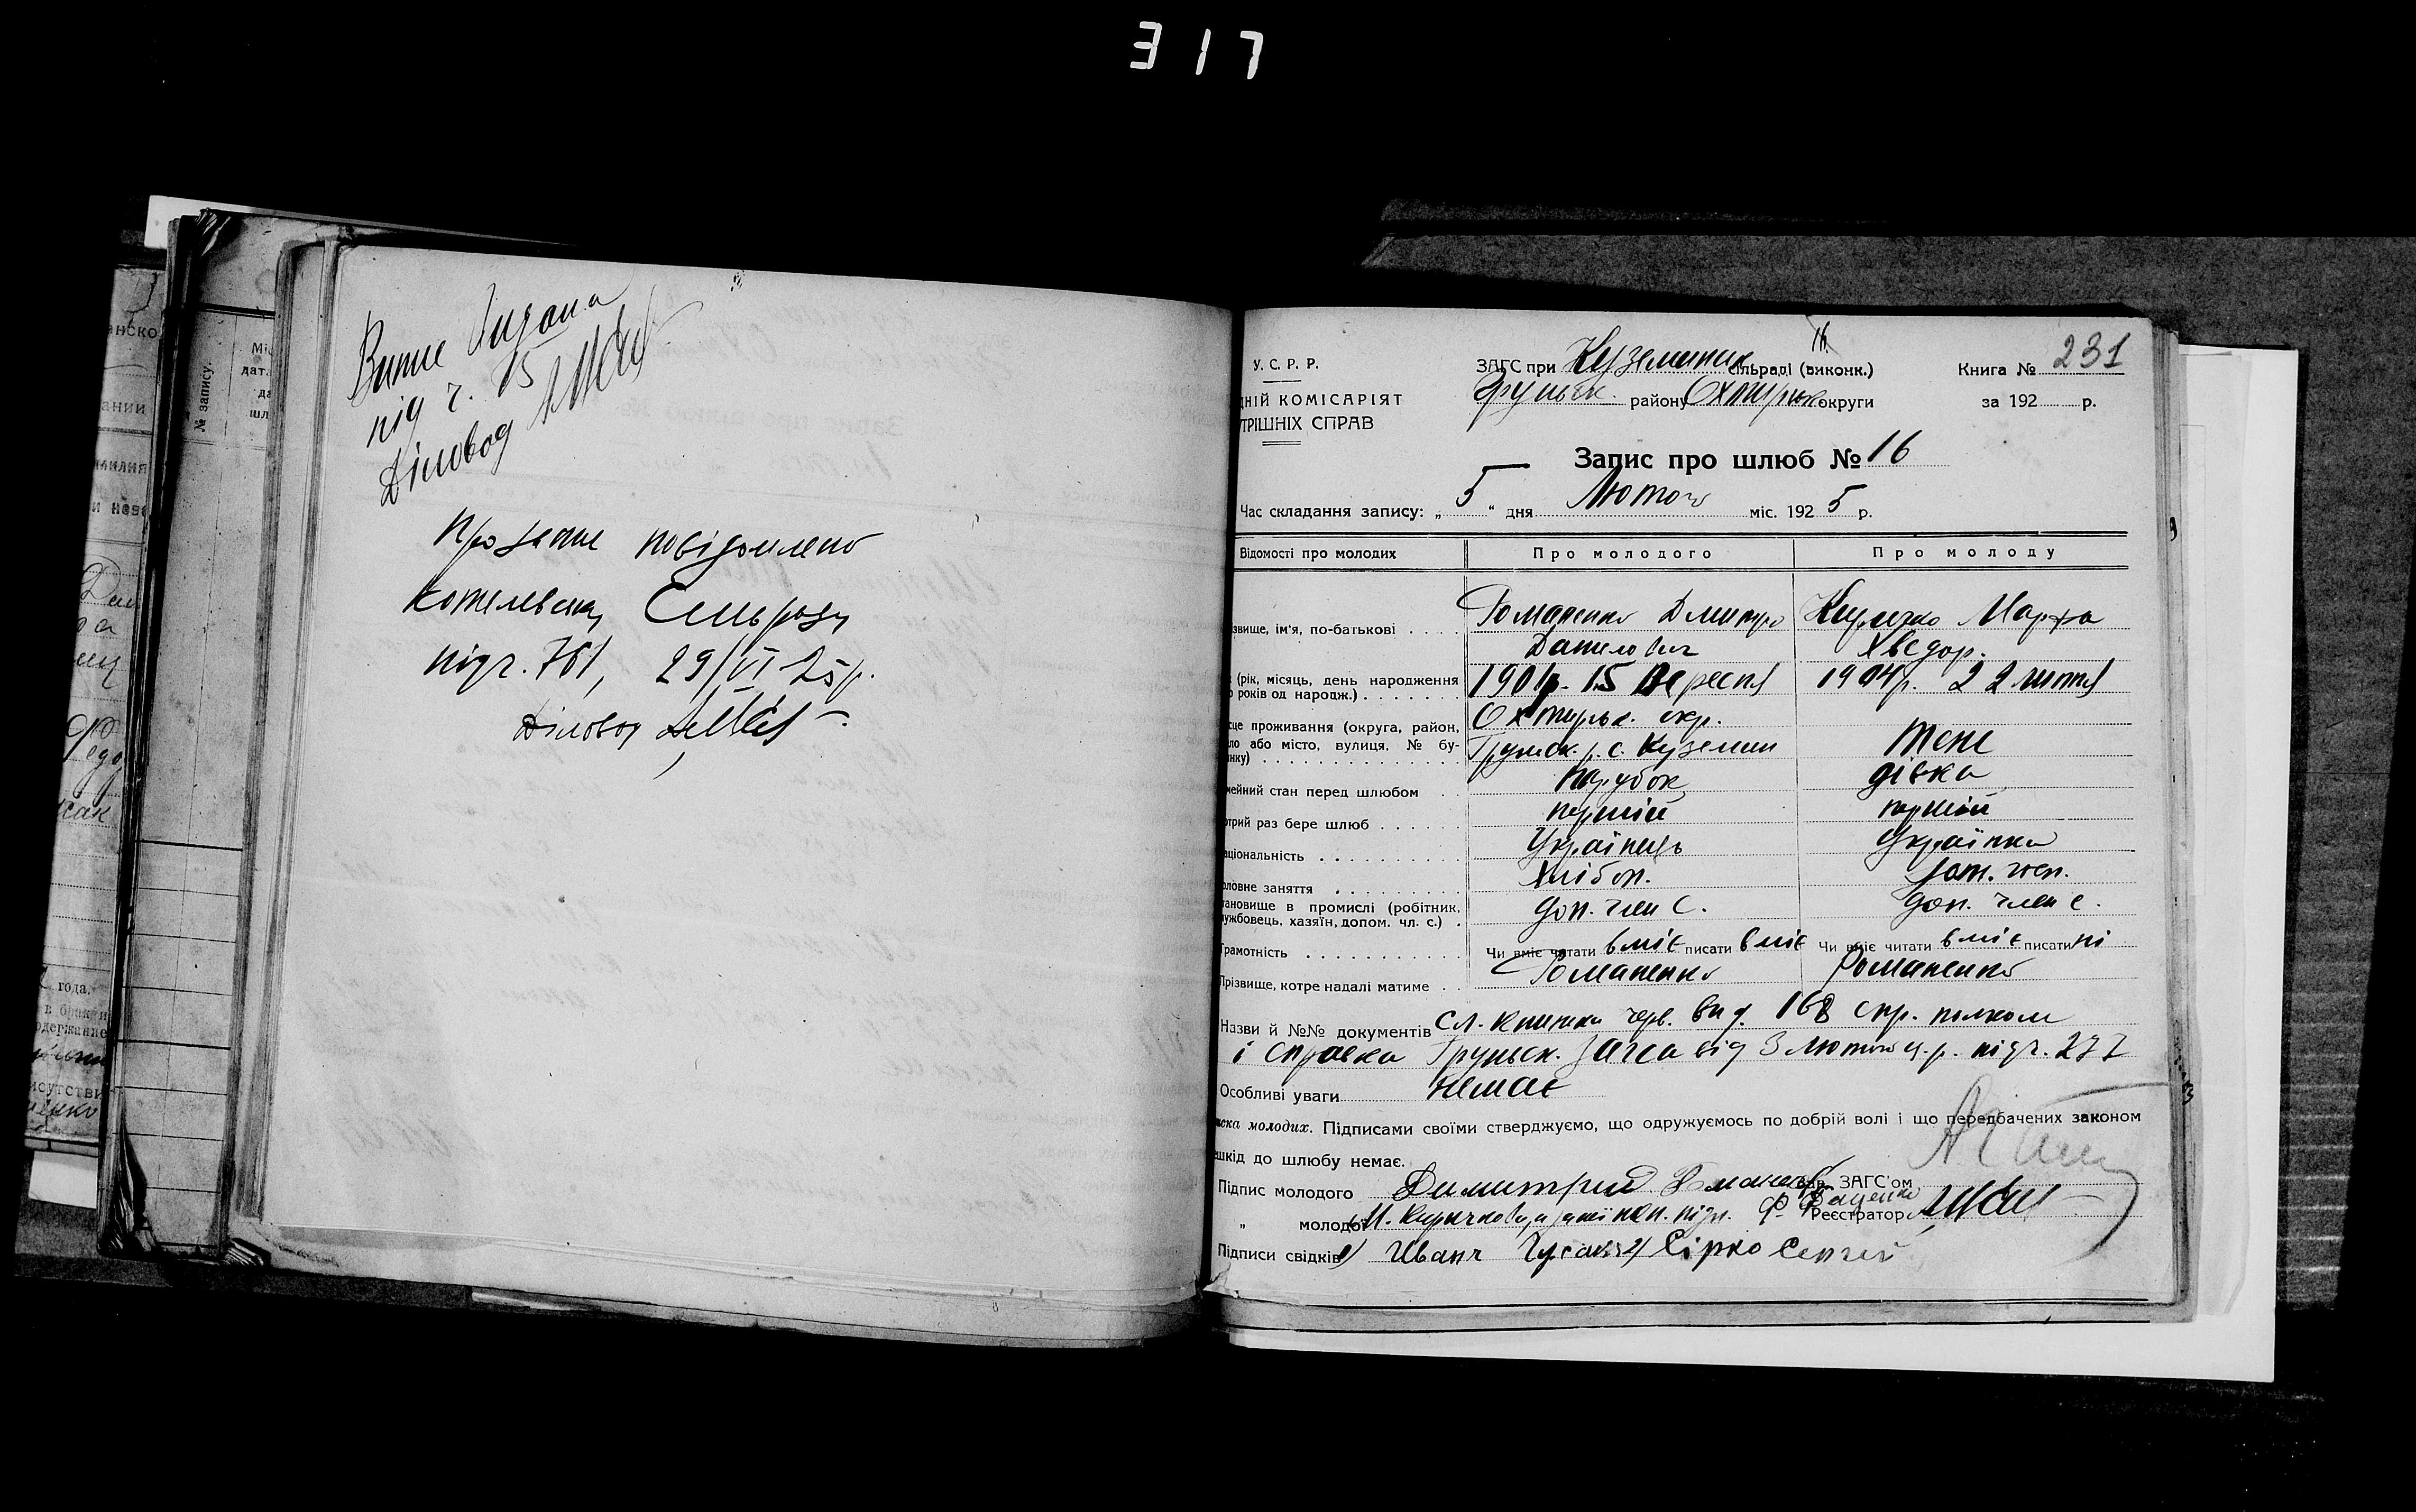 317
під ч. 15
Діловод
Про запис повідомлено
Котелевську Сільраду
під ч. 761, 29/VI 25 р.
Діловод
16.
231
У. С. Р. Р.
ЗАГС при Куземинск. сільраді (виконк.)
Книга №
Грунськ. району Охтирськ. округи
за 192 р.
ДНІЙ КОМІСАРІЯТ
ТРІШНІХ СПРАВ
Запис про шлюб № 16
Час складання запису: „ 5 " дня Лютого міс. 192 5 р.
Відомості про молодих
Про молодого
Про молоду
звище, ім'я, по-батькові
Романенко Дмитро
Данилович
Марфа
Хведор.
(рік, місяць, день народження
років од народж.)
1901 р. 15 Вересня
1904 р. 22 лютня
сце проживання (округа, район,
ло або місто, вулиця, № бу-
нку)
Охтирськ. окр.
Грунськ. р. с. Куземин
Теж
мейний стан перед шлюбом
парубок
дівка
отрий раз бере шлюб
перший
перший
аціональність
Українець
Українка
оловне заняття
Хлібоп.
тановище в промислі (робітник,
ужбовець, хазяїн, допом. чл. с.)
доп. член с.
доп. член с.
рамотність
Чи вміє читати вміє писати вміє
Чи вміє читати вміє писати ні
Прізвище, котре надалі матиме
Романенко
Романенко
Назви й №№ документів Сл. книжка черв. вид. 168 стр. полком
і справка Грунськ. Загса від 3 лютого ц. р. під ч. 277
Особливі уваги немає
иска молодих. Підписами своїми стверджуємо, що одружуємось по добрій волі і що передбачених законом
шкід до шлюбу немає.
Підпис молодого Димитрий
Зав. ЗАГС'ом
„ молодої
Реєстратор
Підписи свідків 1) Иван 2) Сірко Сергей